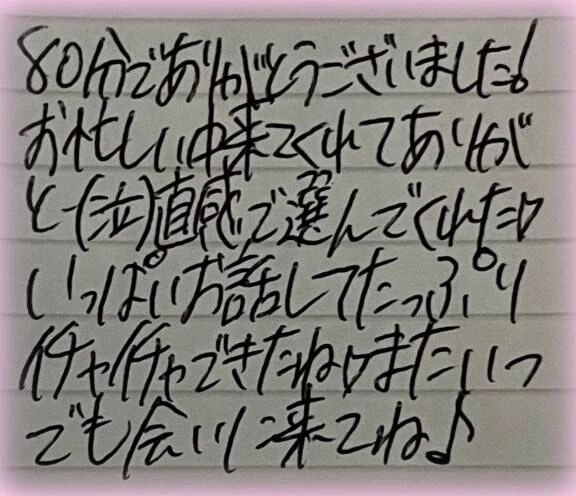 80分でありがとうございました!
お忙しい中来てくれてありが
と~(泣)直感で選んでくれた♡
いっぱいお話してたっぷり
イチャイチャできたね♡またいつ
でも会いに来てね♪